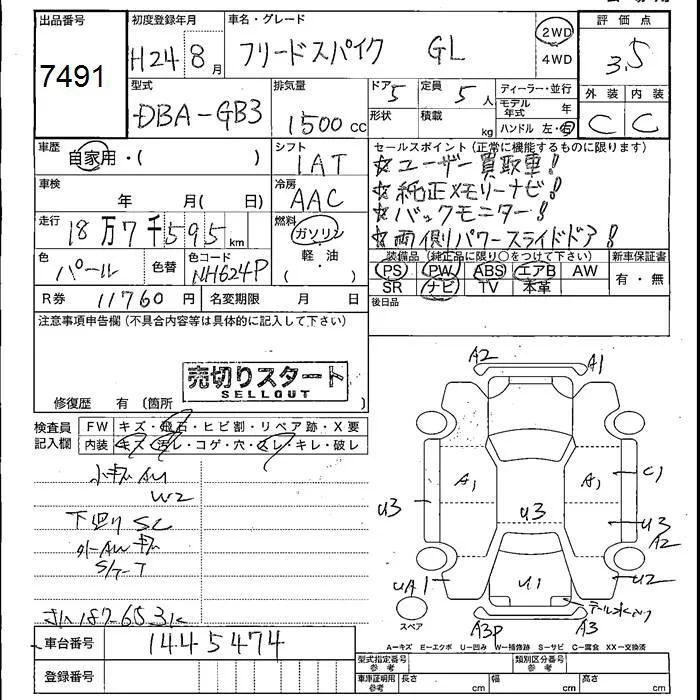 出品番号
7491
初度登録年月
H24 8月
車名・グレード
フリードスパイク GL
2WD
4WD
評価点
3.5
外装 内装
C C
型式
DBA-GB3
排気量
1500cc
ドア
5
形状
定員
5人
積載
kg
ディーラー・並行
モデル年式 年
ハンドル 左・右
車歴
自家用・( )
シフト
1AT
セールスポイント(正常に機能するものに限ります)
☆ユーザー買取車!
☆純正メモリーナビ!
☆バックモニター!
☆両側パワースライドドア!
車検
年 月( 日)
冷房
AAC
走行
18万7千595km
燃料
ガソリン
軽・油
( )
色
パール
色替
色コード
NH624P
装備品(純正品に限り○をつけて下さい)
PS PW ABS エアB AW
SR ナビ TV 本革
新車保証書
有・無
R券 11760円
名変期限 月 日
後日品
注意事項申告欄(不具合内容等は具体的に記入して下さい)
売切りスタート
SELLOUT
修復歴 有(箇所 )
検査員
記入欄
FW キズ・飛石・ヒビ割・リペア跡・X要
内装 キズ・汚レ・コゲ・穴・スレ・キレ・破レ
W2
下廻り SC
A2 A1
A1 A1 C1
U3 U3 U3
A2
UA1 U1 U2
A3P A3
スペア
車台番号
1445474
登録番号
A=キズ E=エクボ U=凹み W=補修跡 S=サビ C=腐食 XX=交換済
型式指定番号
参考
類別区分番号
参考
車庫証明用
参考
長さ cm
幅 cm
高さ cm